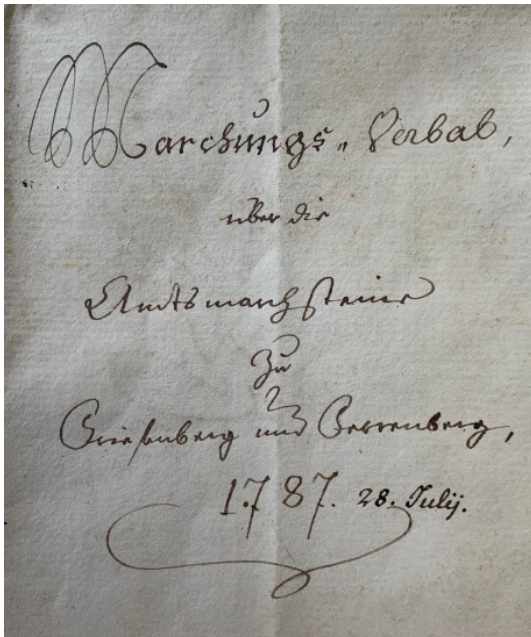 Marchungs„ Verbal,
über die
Amtsmarchsteine
Zu
Griesenberg und Gerrenberg,
1787. 28. Julij.